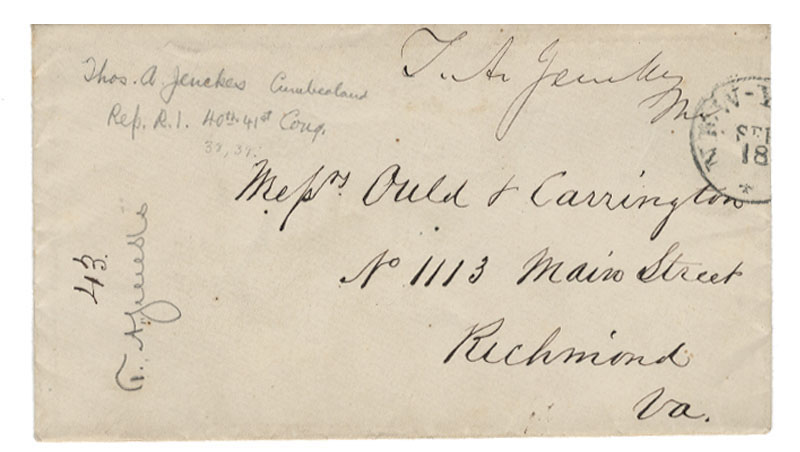 Thos. A Jenckes Cumberland
Rep. R.I. 40th-41st Cong.
T. A. Jenckes
M.C.
NEW-Y
SEP
18
Messrs Ould & Carrington
No 1113 Main Street
Richmond
Va.
43.
T. A. Jenckes